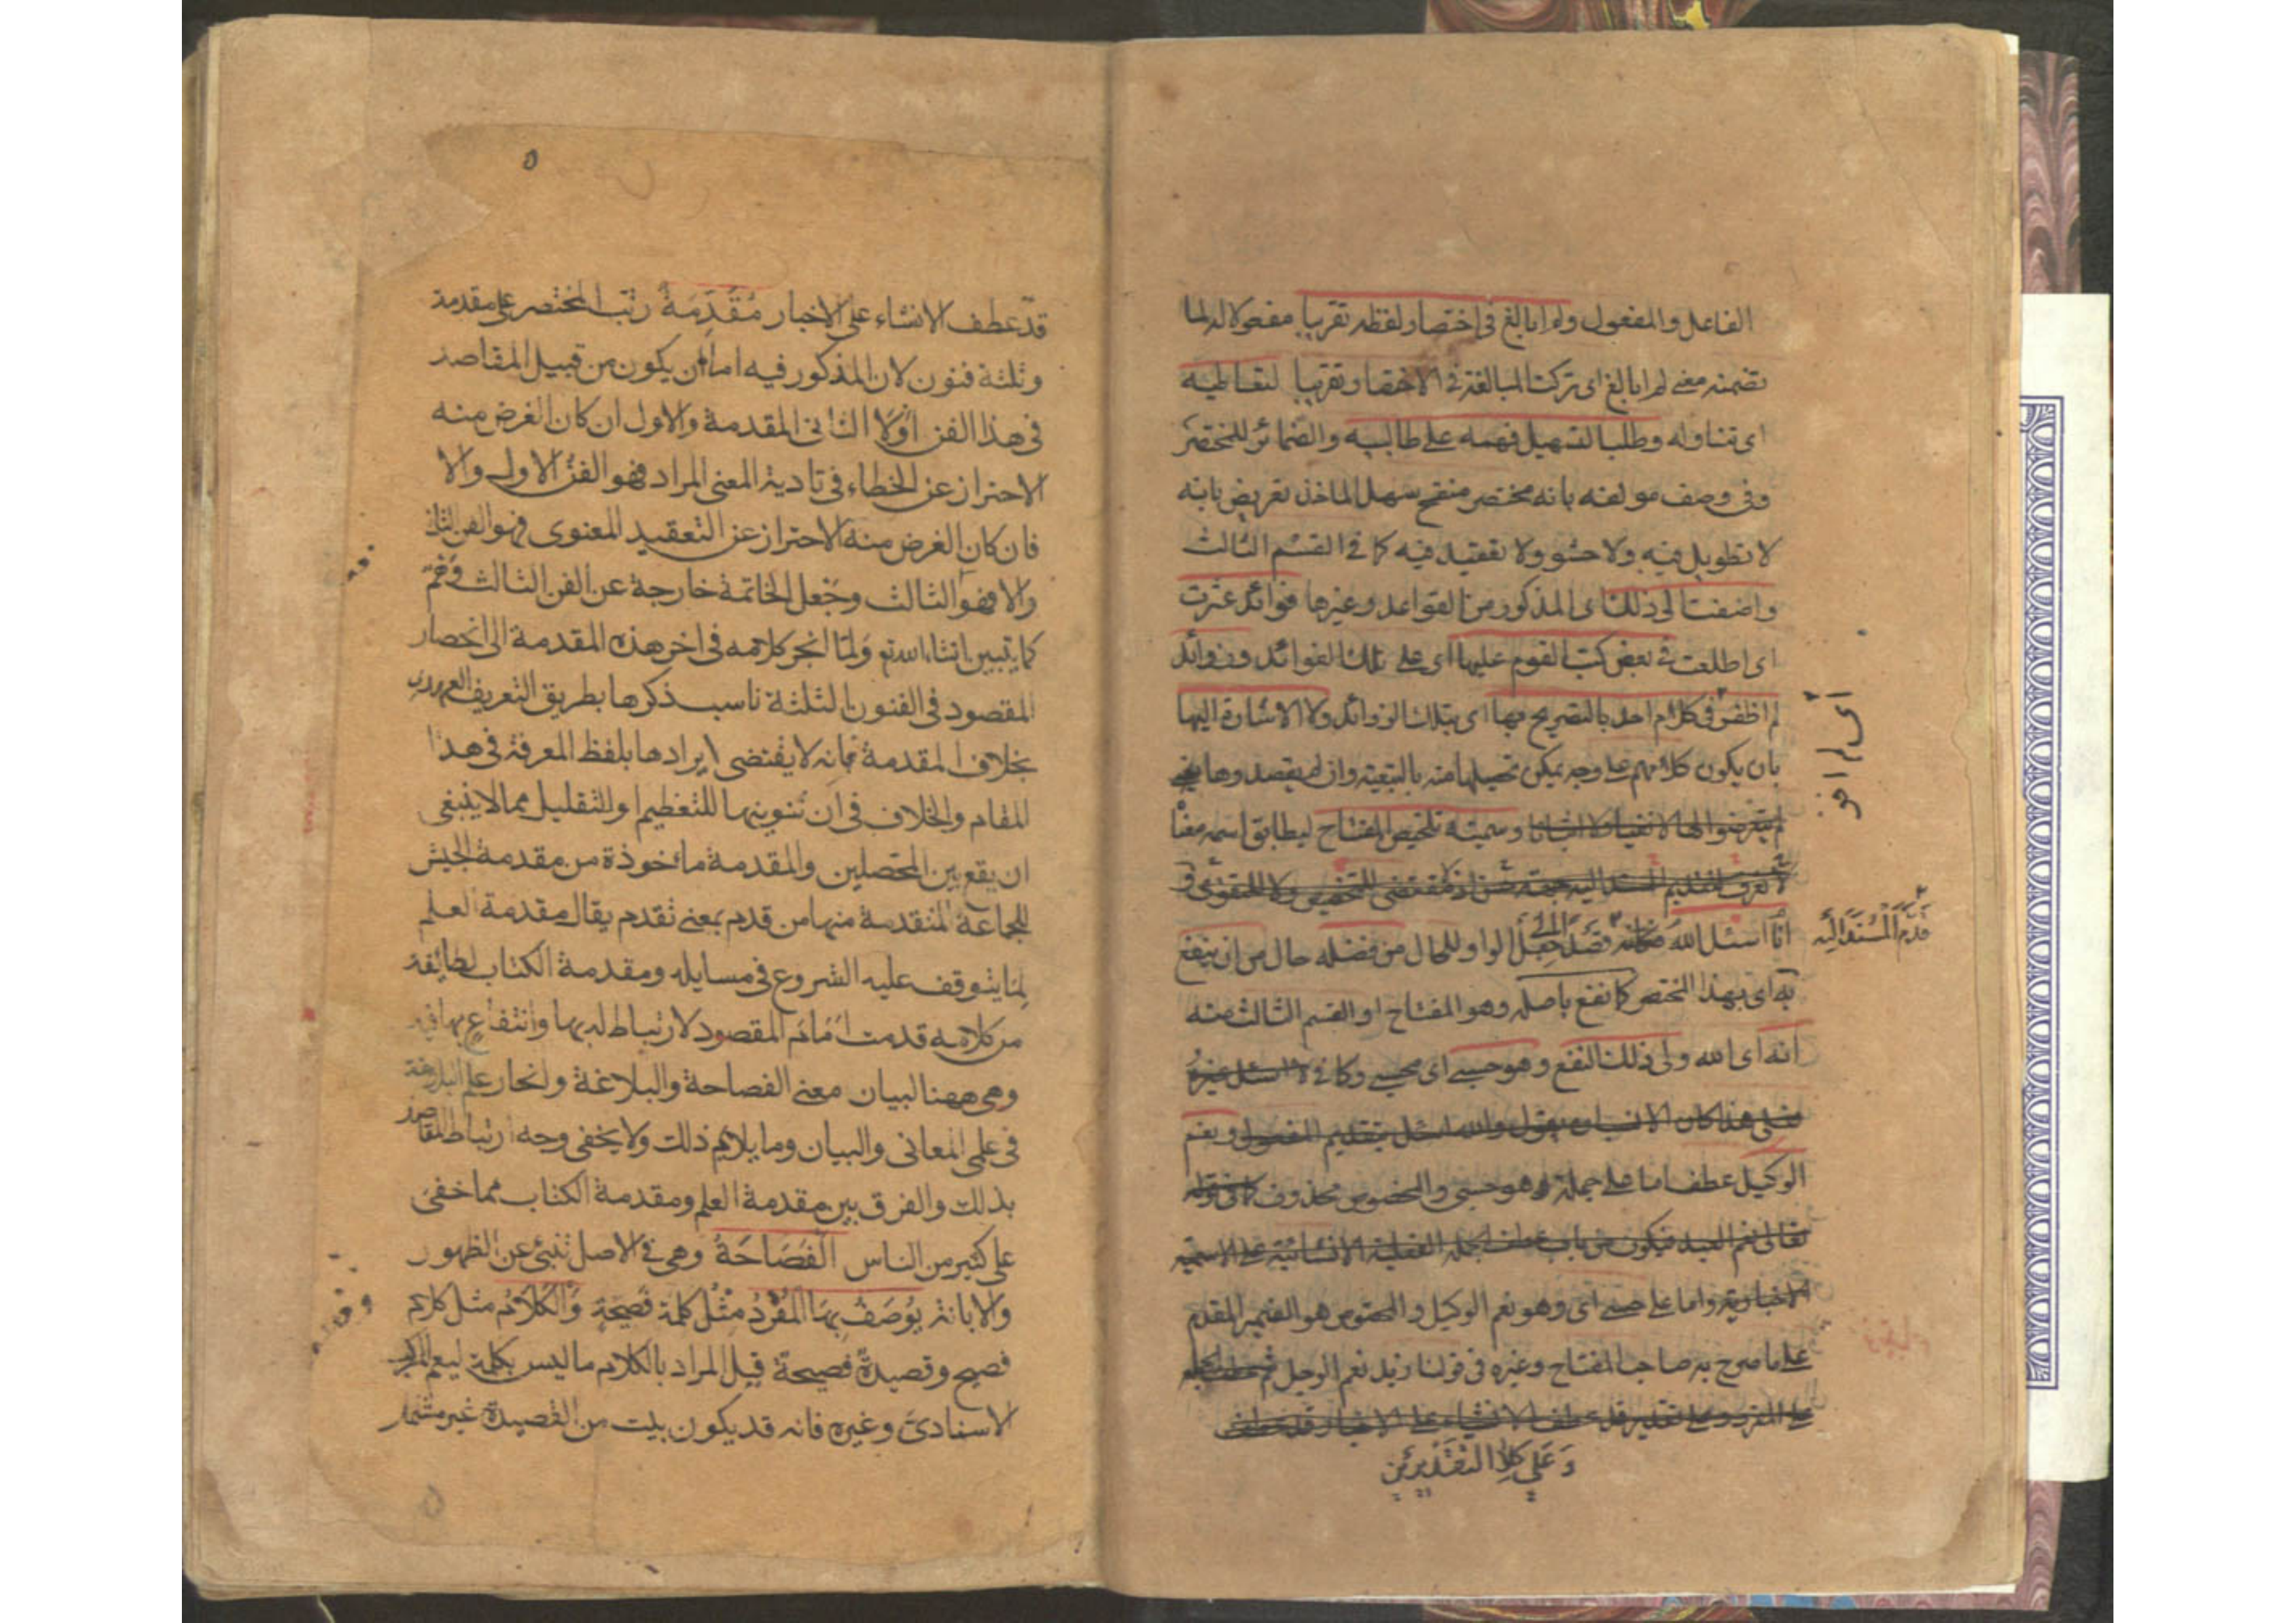 الفاعل والمفعول ولم ابالغ فى اختصار لفظه تقريبا مفعولا له لما
تضمنه معنى لم ابالغ اى تركت المبالغة فى الاختصار تقريبا لتعاطيه
اى تناوله وطلبا لتسهيل فهمه على طالبيه والضمائر للمختصر
وفى وصف مولفه بانه مختصر منقح سهل الماخذ تعريض بانه
لا تطويل فيه ولا حشو ولا تعقيد فيه كما فى القسم الثالث
واضفت الى ذلك اى المذكور من القواعد وغيرها فوائد عثرت
اى اطلعت فى بعض كتب القوم عليها اى على تلك الفوائد وزوائد
لم اظفر فى كلام احد بالتصريح بها اى بتلك الزوائد ولا الاشارة اليها
بان يكون كلامهم على وجه يمكن تحصيلها منه بالتبعية وان لم يقصدوها يعنى
لم يتعرضوا لها لا نفيا ولا اثباتا وسميته تلخيص المفتاح ليطابق اسمه معناه
لتقديم المسند اليه جهة حسن اذ لا مقتضى للتخصيص ولا للتقوى و
انا اسئل الله قصدا جعل الواو للحال من فضله حال من ان ينفع
به اى بهذا المختصر كما نفع باصله وهو المفتاح او القسم الثالث منه
انه اى الله ولى ذلك النفع وهو حسبى اى محسبى وكافى لا اسئل غيره
فعلى هذا كان الانسب ان يقول والله اسئل بتقديم المفعول ونعم
الوكيل عطف اما على جملة وهو حسبى والمخصوص محذوف كما فى قوله
تعالى نعم العبد فيكون من باب عطف الجملة الفعلية الانشائية على الاسمية
الاخبارية واما على حسبى اى وهو نعم الوكيل والمخصوص هو الضمير المقدم
على ما صرح به صاحب المفتاح وغيره فى قولنا زيد نعم الرجل ثم عطف الجملة
على المفرد وعلى تقدير قد عطف الانشاء على الاخبار قد عطف
وعلى كلا التقديرين
اى لم ابالغ
قدم المسند اليه
٥
قد عطف الانشاء على الاخبار مقدمة رتب المختصر على مقدمة
وثلثة فنون لان المذكور فيه اما ان يكون من قبيل المقاصد
فى هذا الفن او لا الثانى المقدمة والاول ان كان الغرض منه
الاحتراز عن الخطاء فى تادية المعنى المراد فهو الفن الاول والا
فان كان الغرض منه الاحتراز عن التعقيد المعنوى فهو الفن الثانى
والا فهو الثالث وجعل الخاتمة خارجة عن الفن الثالث وهم
كما يتبين انشاء الله تع ولما انجر كلامه فى اخر هذه المقدمة الى انحصار
المقصود فى الفنون الثلثة ناسب ذكرها بطريق التعريف العهدى
بخلاف المقدمة فانه لا يقتضى لايرادها بلفظ المعرفة فى هذا
المقام والخلاف فى ان تنوينها للتعظيم او للتقليل مما لا ينبغى
ان يقع بين المحصلين والمقدمة ماخوذة من مقدمة الجيش
للجماعة المتقدمة منها من قدم بمعنى تقدم يقال مقدمة العلم
لما يتوقف عليه الشروع فى مسايله ومقدمة الكتاب لطايفة
من كلامه قدمت امام المقصود لارتباط له بها وانتفاع بها فيه
وهى ههنا لبيان معنى الفصاحة والبلاغة وانحصار علم البلاغة
فى علمى المعانى والبيان وما يلايم ذلك ولا يخفى وجه ارتباط المقاصد
بذلك والفرق بين مقدمة العلم ومقدمة الكتاب مما خفى
على كثير من الناس الفصاحة وهى فى الاصل تنبئ عن الظهور
والابانة يوصف بها المفرد مثل كلمة فصيحة والكلام مثل كلام
فصيح وقصيدة فصيحة قيل المراد بالكلام ما ليس بكلمة ليعم المركب
الاسنادى وغيره فانه قد يكون بيت من القصيدة غير مشتمل